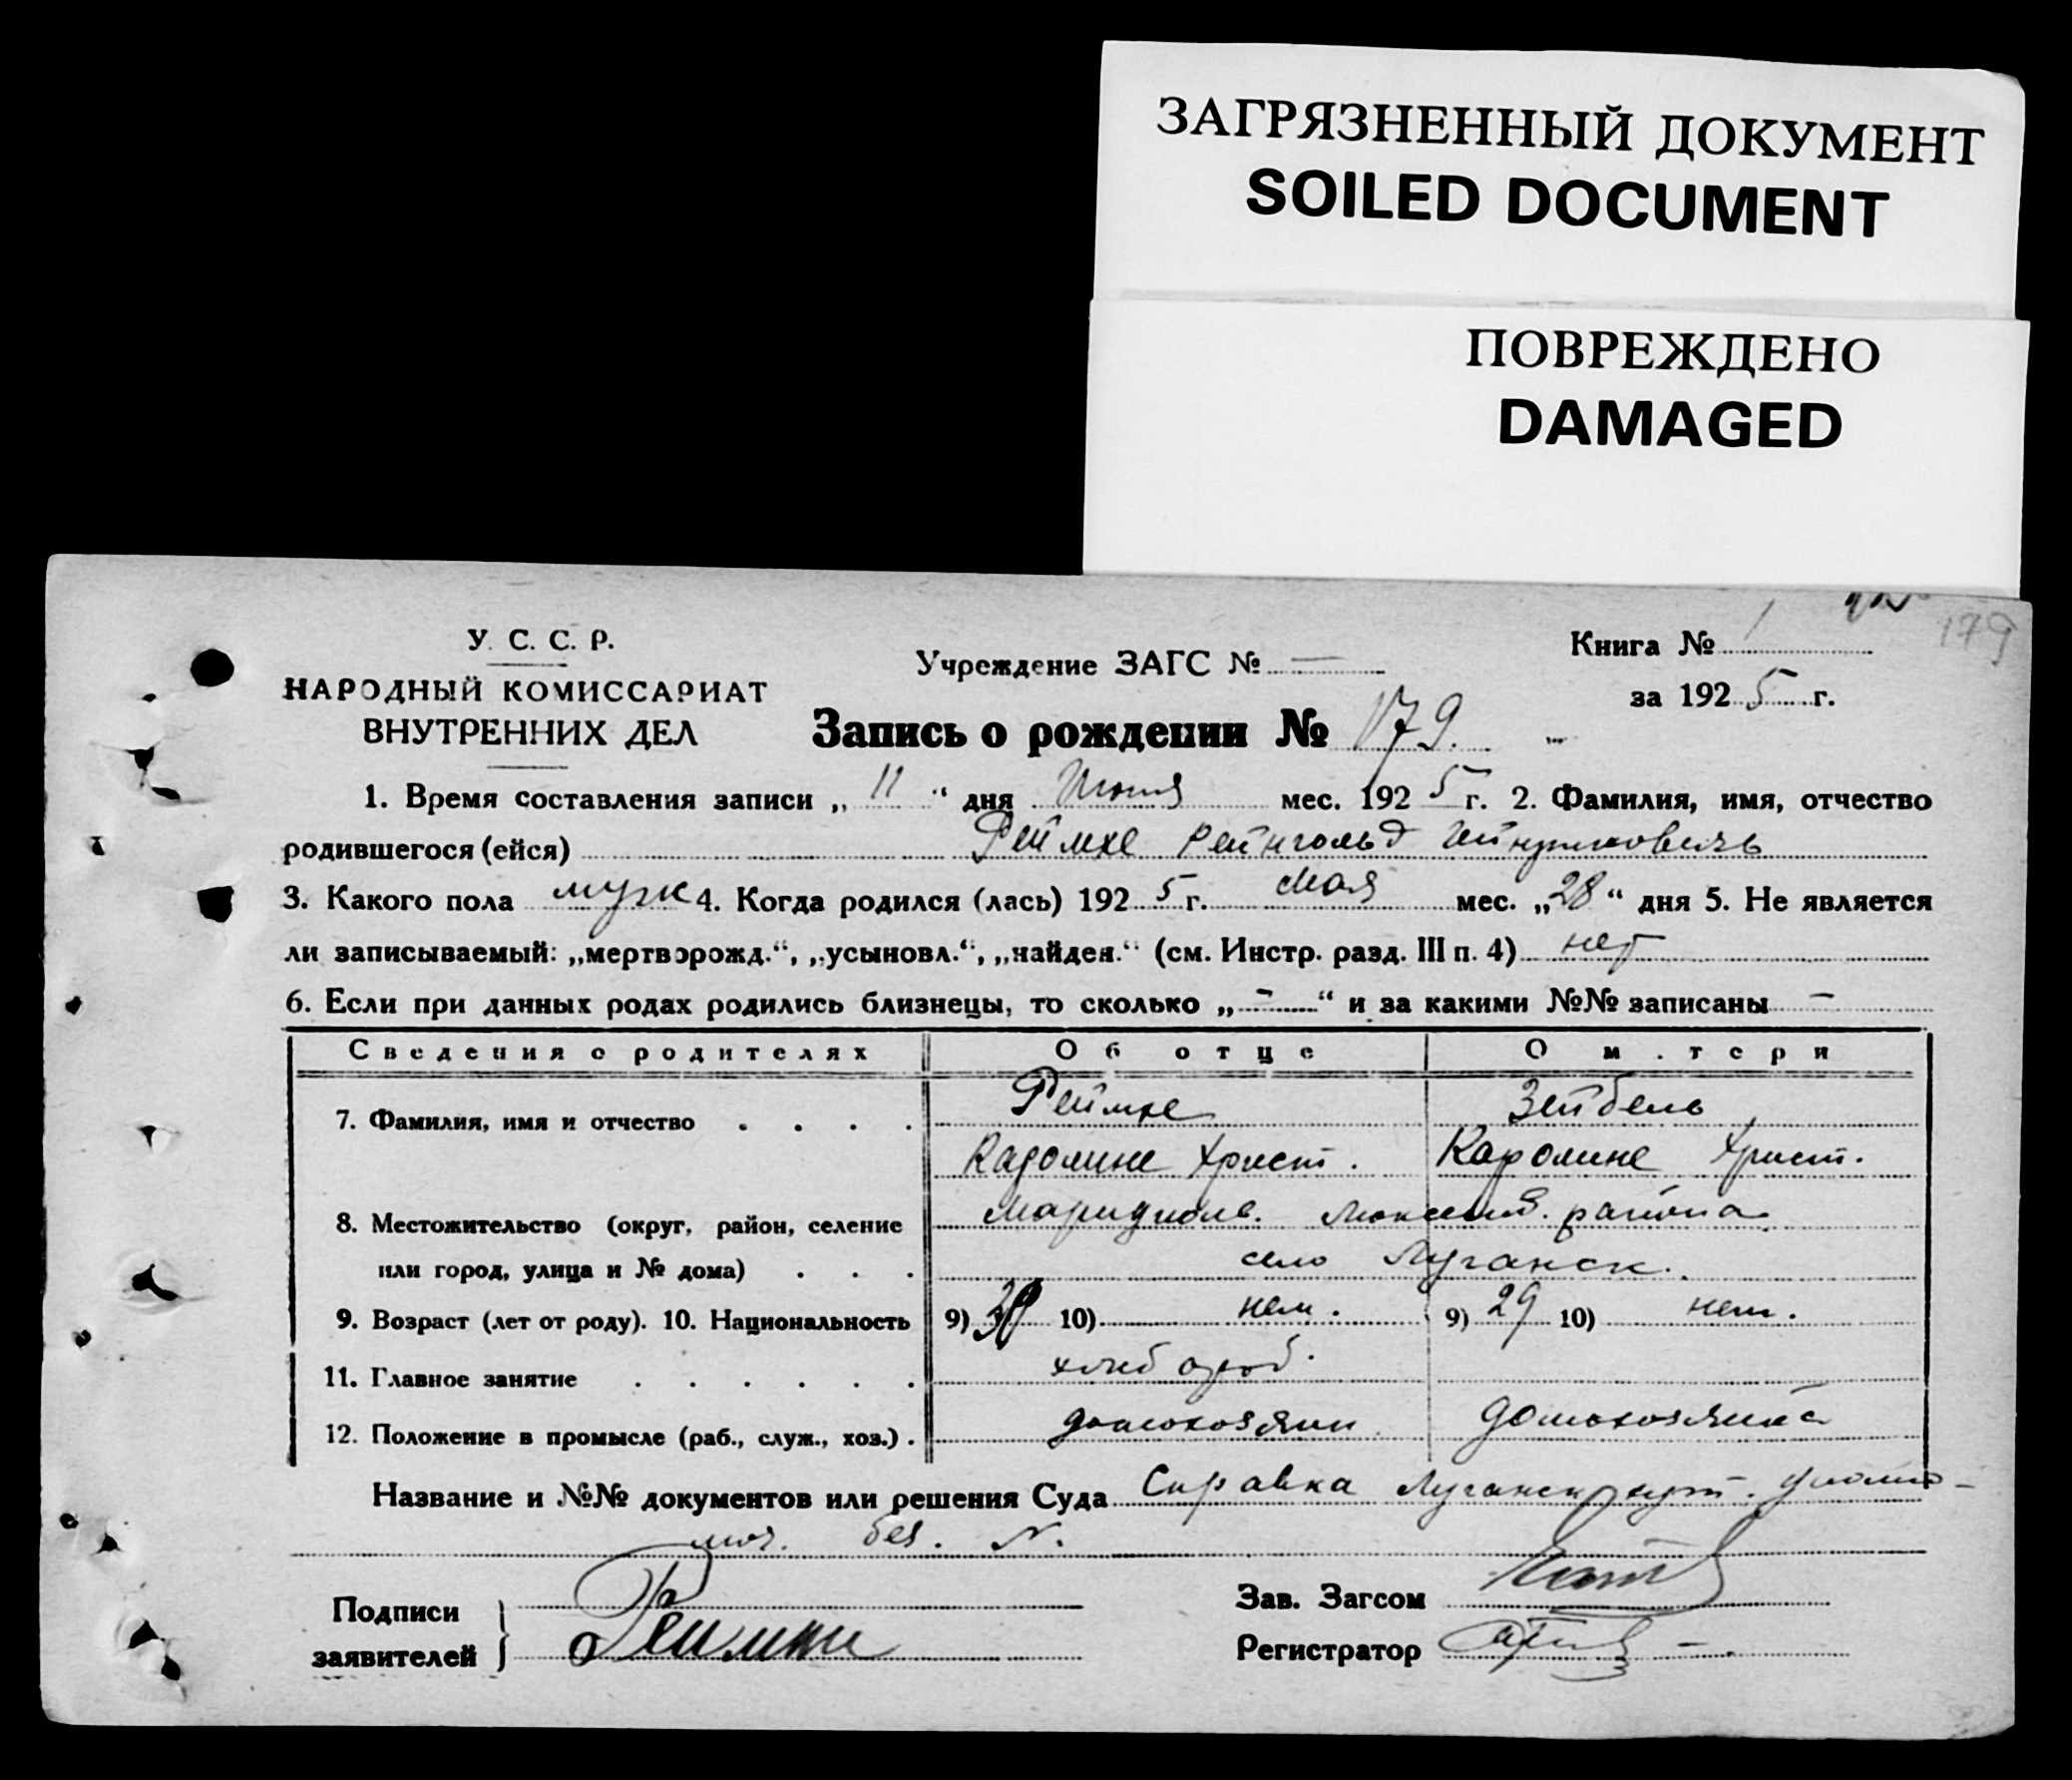 ЗАГРЯЗНЕННЫЙ ДОКУМЕНТ
SOILED DOCUMENT
ПОВРЕЖДЕНО
DAMAGED
179
У. С. С. Р.
НАРОДНЫЙ КОМИССАРИАТ
ВНУТРЕННИХ ДЕЛ
Учреждение ЗАГС № —
Книга № 1
за 1925 г.
Запись о рождении № 179.
1. Время составления записи „ 11 “ дня Июня мес. 1925 г. 2. Фамилия, имя, отчество
родившегося (ейся) Реймхе Рейнгольд
3. Какого пола муж 4. Когда родился (лась) 1925 г. Мая мес. „28“ дня 5. Не является
ли записываемый: „мертворожд.“, „усыновл.“, „найден.“ (см. Инстр. разд. III п. 4) нет
6. Если при данных родах родились близнецы, то сколько „ - “ и за какими №№ записаны -
Сведения о родителях Об отце О м. тери
7. Фамилия, имя и отчество . . . . Реймхе Зейбель
Христ. Каролине Христ.
8. Местожительство (округ, район, селение Мариуполь. района
или город, улица и № дома) . . . село Луганск.
9. Возраст (лет от роду). 10. Национальность 9) 10) нем. 9) 29 10) нем.
11. Главное занятие . . . . . . хлебороб.
12. Положение в промысле (раб., служ., хоз.) . домохозяин домохозяйка
Название и №№ документов или решения Суда Справка Луганск уполно-
моч. без. N.
Подписи
заявителей
Реймхе
Зав. Загсом
Регистратор